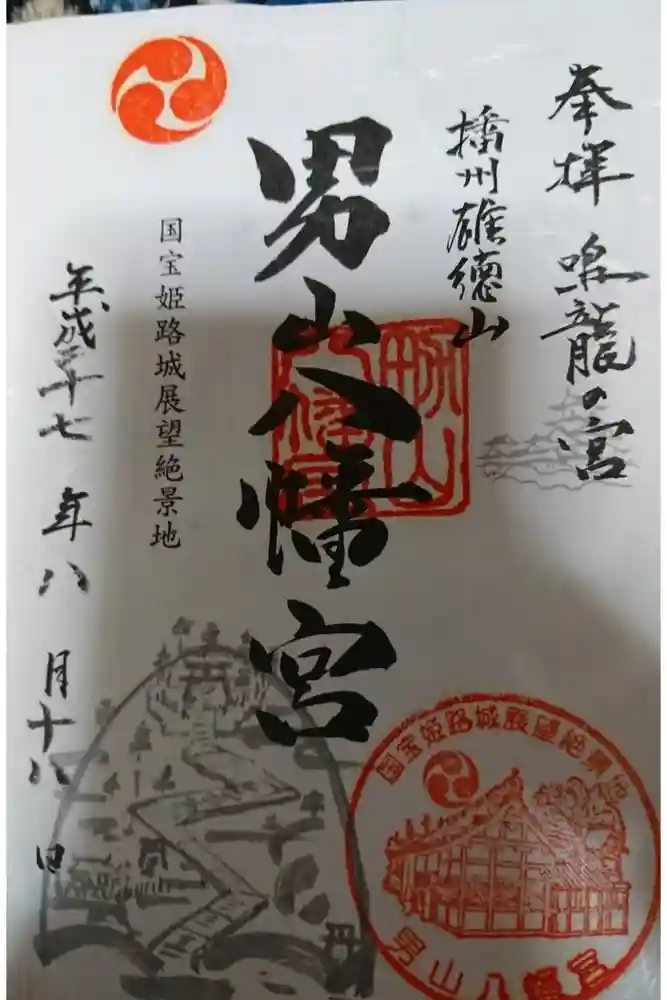 奉拝 鳴龍の宮
播州雄徳山
男山八幡宮
国宝姫路城展望絶景地
平成三十七年八月十八日
国宝姫路城展望絶景地
男山八幡宮